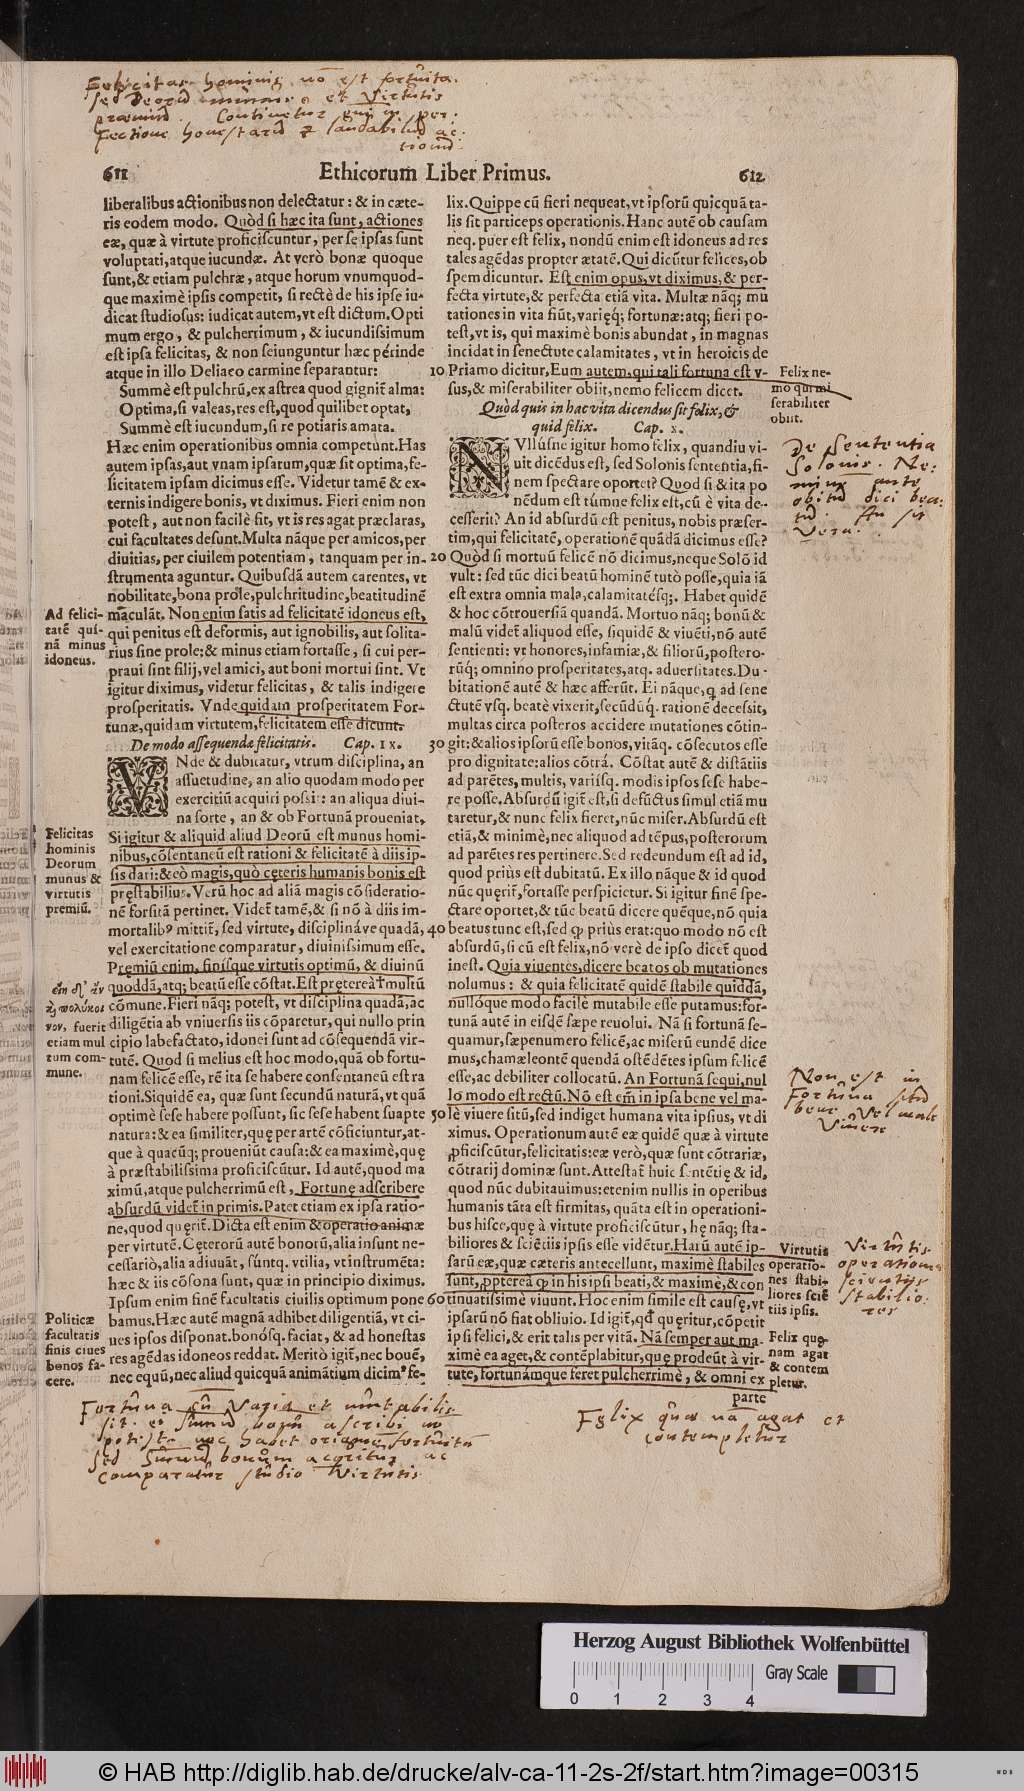 Felicitas hominis nō est fortuita.
sed Deorū munus, et Virtutis
præmiū. Continetur enim in per:
fectione honestarū & laudabiliū ac:
tionū.
611
Ethicorum Liber Primus.
612
liberalibus actionibus non delectatur: & in cæte-
ris eodem modo. Quòd si hæc ita sunt, actiones
eæ, quæ à virtute proficiscuntur, per se ipsas sunt
voluptati, atque iucundæ. At verò bonæ quoque
sunt, & etiam pulchræ, atque horum vnumquod-
que maximè ipsis competit, si rectè de his ipse iu-
dicat studiosus: iudicat autem, vt est dictum. Opti
mum ergo, & pulcherrimum, & iucundissimum
est ipsa felicitas, & non seiunguntur hæc périnde
atque in illo Deliaco carmine separantur:
Summè est pulchrū, ex astrea quod gignit alma:
Optima, si valeas, res est, quod quilibet optat,
Summè est iucundum, si re potiaris amata.
Hæc enim operationibus omnia competunt. Has
autem ipsas, aut vnam ipsarum, quæ sit optima, fe-
licitatem ipsam dicimus esse. Videtur tamē & ex-
ternis indigere bonis, vt diximus. Fieri enim non
potest, aut non facilè fit, vt is res agat præclaras,
cui facultates desunt. Multa nāque per amicos, per
diuitias, per ciuilem potentiam, tanquam per in-
strumenta aguntur. Quibusdā autem carentes, vt
nobilitate, bona prole, pulchritudine, beatitudinē
maculāt. Non enim satis ad felicitatē idoneus est,
qui penitus est deformis, aut ignobilis, aut solita-
rius sine prole: & minus etiam fortasse, si cui per-
praui sint filij, vel amici, aut boni mortui sint. Vt
igitur diximus, videtur felicitas, & talis indigere
prosperitatis. Vnde quidam prosperitatem For-
tunæ, quidam virtutem, felicitatem esse dicunt.
Ad felici-
tatē qui-
nā minus
idoneus.
De modo assequendæ felicitatis. Cap. IX.
VNde & dubitatur, vtrum disciplina, an
assuetudine, an alio quodam modo per
exercitiū acquiri possit: an aliqua diui-
na sorte, an & ob Fortunā proueniat.
Si igitur & aliquid aliud Deorū est munus homi-
nibus, cōsentaneū est rationi & felicitatē à diis ip-
sis dari: & eò magis, quò cęteris humanis bonis est
pręstabilius. Verū hoc ad aliā magis cōsideratio-
nē forsitā pertinet. Videt̄ tamē, & si nō à diis im-
mortalibꝰ mittit̄, sed virtute, disciplináve quadā,
vel exercitatione comparatur, diuinissimum esse.
Pręmiū enim, finísque virtutis optimū, & diuinū
quoddā, atq; beatū esse cōstat. Est pręterea † multū
cōmune. Fieri nāq; potest, vt disciplina quadā, ac
diligētia ab vniuersis iis cōparetur, qui nullo prin
cipio labefactato, idonei sunt ad cōsequendā vir-
tutē. Quod si melius est hoc modo, quā ob fortu-
nam felicē esse, rē ita se habere consentaneū est ra
tioni. Siquidē ea, quæ sunt secundū naturā, vt quā
optimè sese habere possunt, sic sese habent suapte
natura: & ea similiter, quę per artē cōficiuntur, at-
que à quacūq; proueniūt causa: & ea maximè, quę
à præstabilissima proficiscūtur. Id autē, quod ma
ximū, atque pulcherrimū est, Fortunę adscribere
absurdū videt̄ in primis. Patet etiam ex ipsa ratio-
ne, quod quęrit̄. Dicta est enim & operatio animæ
per virtutē. Cęterorū autē bonorū, alia insunt ne-
cessariò, alia adiuuāt, súntq. vtilia, vt instrumēta:
hæc & iis cōsona sunt, quæ in principio diximus.
Ipsum enim finē facultatis ciuilis optimum pone
bamus. Hæc autē magnā adhibet diligentiā, vt ci-
ues ipsos disponat. bonósq. faciat, & ad honestas
res agēdas idoneos reddat. Meritò igit̄, nec bouē,
nec equū, nec aliud quicquā animātium dicimꝰ fe-
Felicitas
hominis
Deorum
munus &
virtutis
premiū.
εἴη δ' ἂν
καὶ πολύκοι
νον, fuerit
etiam mul
tum com-
mune.
Politicæ
facultatis
finis ciues
bonos fa-
cere.
Fortuna cū Vaga et mutabilis
sit. ei sūmū bonū ascribi nō
potest. nec habet originē fortuitā
sed sūmū bonum acqritur ac
comparatur studio Virtutis
lix. Quippe cū fieri nequeat, vt ipsorū quicquā ta-
lis sit particeps operationis. Hanc autē ob causam
neq. puer est felix, nondū enim est idoneus ad res
tales agēdas propter ætatē. Qui dicūtur felices, ob
spem dicuntur. Est enim opus, vt diximus, & per-
fecta virtute, & perfecta etiā vita. Multæ nāq; mu
tationes in vita fiūt, varięq; fortunæ: atq; fieri po-
test, vt is, qui maximè bonis abundat, in magnas
incidat in senectute calamitates, vt in heroicis de
10 Priamo dicitur, Eum autem, qui tali fortuna est v-
sus, & miserabiliter obiit, nemo felicem dicet.
Felix ne-
mo qui mi
serabiliter
obiit.
Quòd quis in hac vita dicendus sit felix, &
quid felix. Cap. X.
NVllúsne igitur homo felix, quandiu vi-
uit dicēdus est, sed Solonis sententia, fi-
nem spectare oportet? Quod si & ita po
nēdum est túmne felix est, cū è vita de-
cesserit? An id absurdū est penitus, nobis præser-
tim, qui felicitatē, operationē quādā dicimus esse?
20 Quòd si mortuū felicē nō dicimus, neque Solō id
vult: sed tūc dici beatū hominē tutò posse, quia iā
est extra omnia mala, calamitatésq;. Habet quidē
& hoc cōtrouersiā quandā. Mortuo nāq; bonū &
malū videt̄ aliquod esse, siquidē & viuēti, nō autē
sentienti: vt honores, infamiæ, & filiorū, postero-
rūq; omnino prosperitates, atq. aduersitates. Du-
bitationē autē & hæc afferūt. Ei nāque, q ad sene
ctutē vsq. beatè vixerit, secūdúq. rationē decessit,
multas circa posteros accidere mutationes cōtin-
30 git: & alios ipsorū esse bonos, vitāq. cōsecutos esse
pro dignitate: alios cōtrā. Cōstat autē & distātiis
ad parētes, multis, variísq. modis ipsos sese habe-
re posse. Absurdū igit̄ est, si defūctus simul etiā mu
taretur, & nunc felix fieret, nūc miser. Absurdū est
etiā, & minimè, nec aliquod ad tēpus, posterorum
ad parētes res pertinere. Sed redeundum est ad id,
quod priùs est dubitatū. Ex illo nāque & id quod
nūc quęrit̄, fortasse perspicietur. Si igitur finē spe-
ctare oportet, & tūc beatū dicere quēque, nō quia
40 beatus tunc est, sed q priùs erat: quo modo nō est
absurdū, si cū est felix, nō verè de ipso dicet̄ quod
inest. Quia viuentes, dicere beatos ob mutationes
nolumus: & quia felicitatē quidē stabile quiddā,
nullóque modo facilè mutabile esse putamus: for-
tunā autē in eisdē sæpe reuolui. Nā si fortunā se-
quamur, sæpenumero felicē, ac miserū eundē dice
mus, chamæleontē quendā ostēdētes ipsum felicē
esse, ac debiliter collocatū. An Fortunā sequi, nul
lo modo est rectū. Nō est em̄ in ipsa bene vel ma-
50 lè viuere sitū, sed indiget humana vita ipsius, vt di
ximus. Operationum autē eæ quidē quæ à virtute
proficiscūtur, felicitatis: eæ verò, quæ sunt cōtrariæ,
cōtrarij dominæ sunt. Attestat̄ huic sentētię & id,
quod nūc dubitauimus: etenim nullis in operibus
humanis tāta est firmitas, quāta est in operationi-
bus hisce, quę à virtute proficiscūtur, hę nāq; sta-
biliores & sciētiis ipsis esse vidētur. Harū autē ip-
sarū eæ, quæ cæteris antecellunt, maximè stabiles
sunt, propterea q in his ipsi beati, & maximè, & con
60 tinuatissimè viuunt. Hoc enim simile est causę, vt
ipsarū nō fiat obliuio. Id igit̄, qd quęritur, cōpetit
ipsi felici, & erit talis per vitā. Nā semper aut ma-
ximè ea aget, & contēplabitur, quę prodeūt à vir-
tute, fortunámque feret pulcherrimè, & omni ex
parte
De sententia
Solonis. Ne:
minē ante
obitū dici bea:
tū. An sit
Vera.
Non est in
Fortuna sitū
bene Vel male
Viuere
Virtutis
operatio-
nes stabi-
liores sciē
tiis ipsis.
Virtutis
operationes
scientiis
stabilio:
res
Felix quę-
nam agat
& contem
pletur.
Felix quæ nā agat et
contempletur
Herzog August Bibliothek Wolfenbüttel
Gray Scale
0 1 2 3 4
© HAB http://diglib.hab.de/drucke/alv-ca-11-2s-2f/start.htm?image=00315